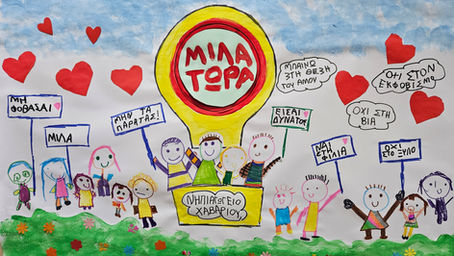 ΜΙΛΑ
ΤΩΡΑ
ΜΠΑΙΝΩ
ΣΤΗ ΘΕΣΗ
ΤΟΥ ΑΛΛΟΥ
ΟΧΙ ΣΤΟΝ
ΕΚΦΟΒΙΣΜΟ
ΟΧΙ ΣΤΗ
ΒΙΑ
ΜΗ
ΦΟΒΑΣΑΙ
ΜΙΛΑ
ΜΗΝ ΤΑ
ΠΑΡΑΤΑΣ!
ΕΙΣΑΙ
ΔΥΝΑΤΟΣ
ΝΑΙ
ΣΤΗ
ΦΙΛΙΑ
ΟΧΙ
ΣΤΟ ΞΥΛΟ
ΝΗΠΙΑΓΩΓΕΙΟ
ΧΑΒΑΡΙΟΥ